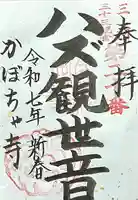 奉拝
ハズ観世音
令和七年 新春
かぼちゃ寺